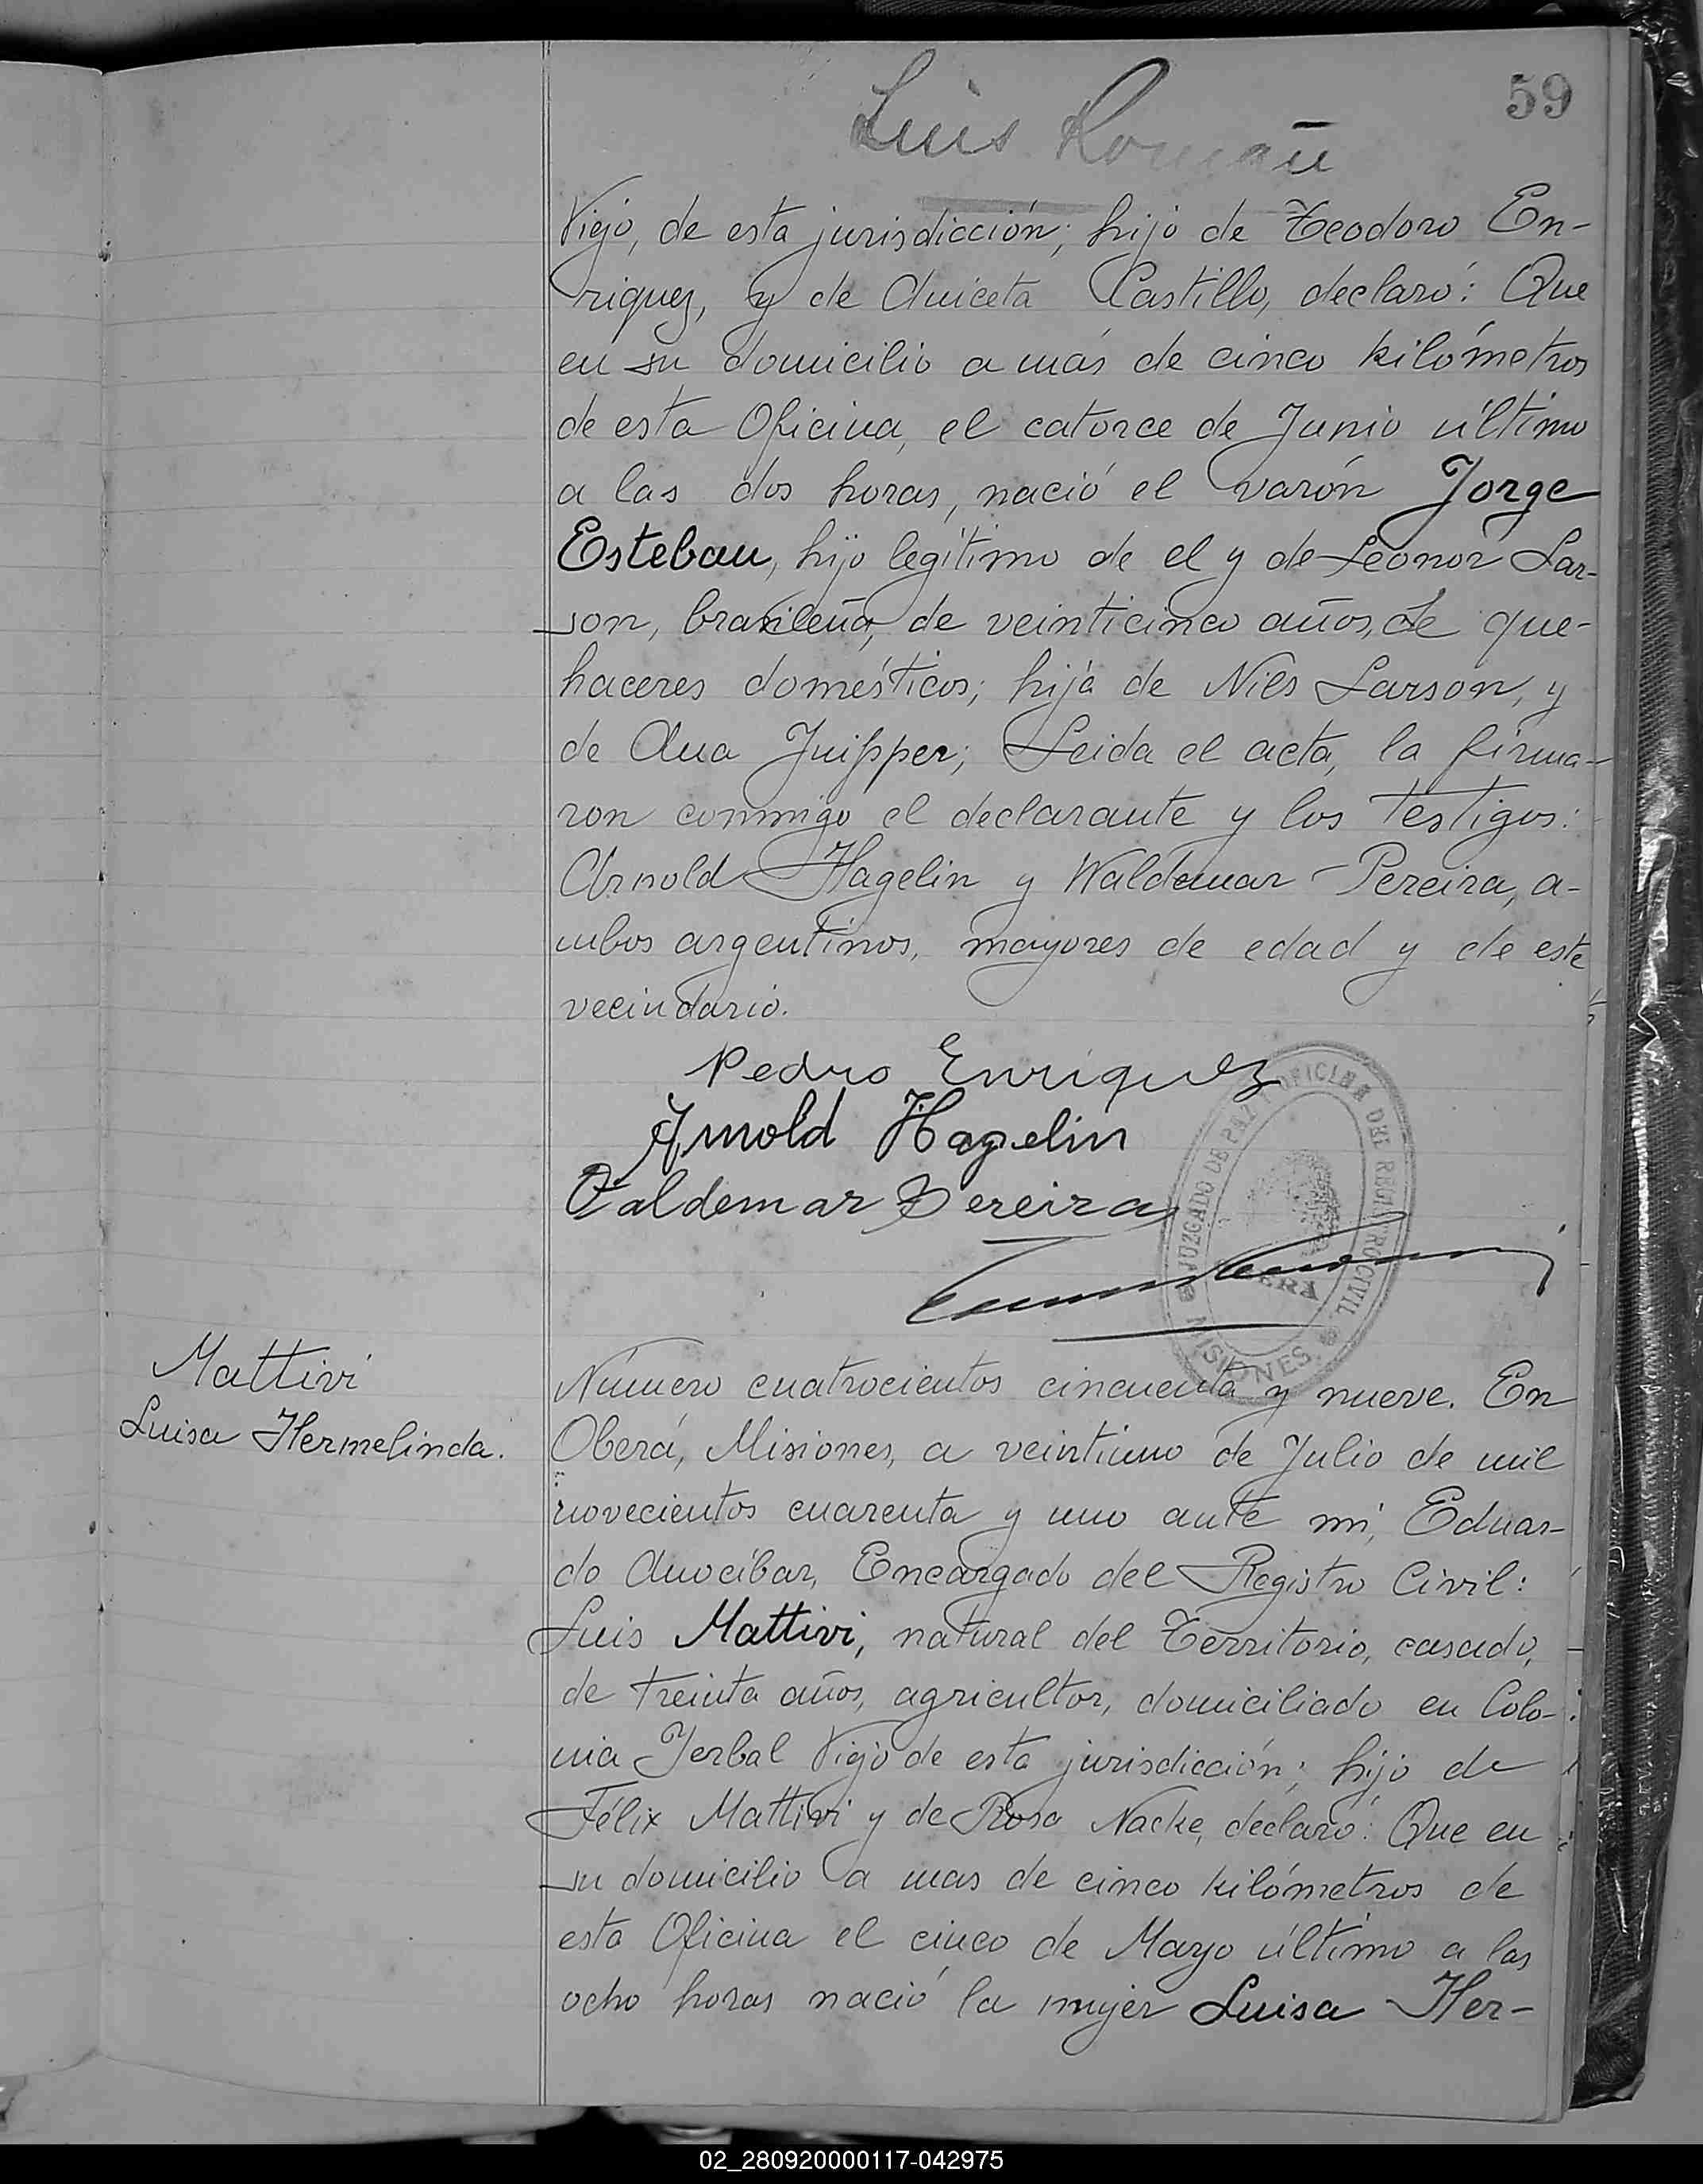 59
Luis Roman
Viejo, de esta jurisdicción; hijo de Teodoro En-
riquez, y de Aniceta Castillo, declaró: Que
en su domicilio a más de cinco kilómetros
de esta Oficina, el catorce de Junio último
a las dos horas, nació el varón Jorge
Esteban, hijo legítimo de el y de Leonor Lar-
son, brasileña, de veinticinco años, de que-
haceres domésticos; hija de Niels Larson, y
de Ana ; Leida el acta, la firma-
ron conmigo el declarante y los testigos:
Arnold Hagelin y Waldemar Pereira, a-
mbos argentinos, mayores de edad y de este
vecindario.
Pedro Enriquez
Arnold Hagelin
Valdemar Pereira
JUZGADO DE PAZ Y OFICINA DEL REGISTRO CIVIL
OBERÁ
MISIONES
Mattivi
Luisa Hermelinda.
Número cuatrocientos cincuenta y nueve. En
Oberá, Misiones, a veintiuno de Julio de mil
novecientos cuarenta y uno ante mí, Eduar-
do Anocíbar, Encargado del Registro Civil:
Luis Mattivi, natural del Territorio, casado,
de treinta años, agricultor, domiciliado en Colo-
nia Yerbal Viejo de esta jurisdicción; hijo de
Félix Mattivi y de Rosa Nacke, declaró: Que en
su domicilio a mas de cinco kilómetros de
esta Oficina el cinco de Mayo último a las
ocho horas nació la mujer Luisa Her-
02_280920000117-042975